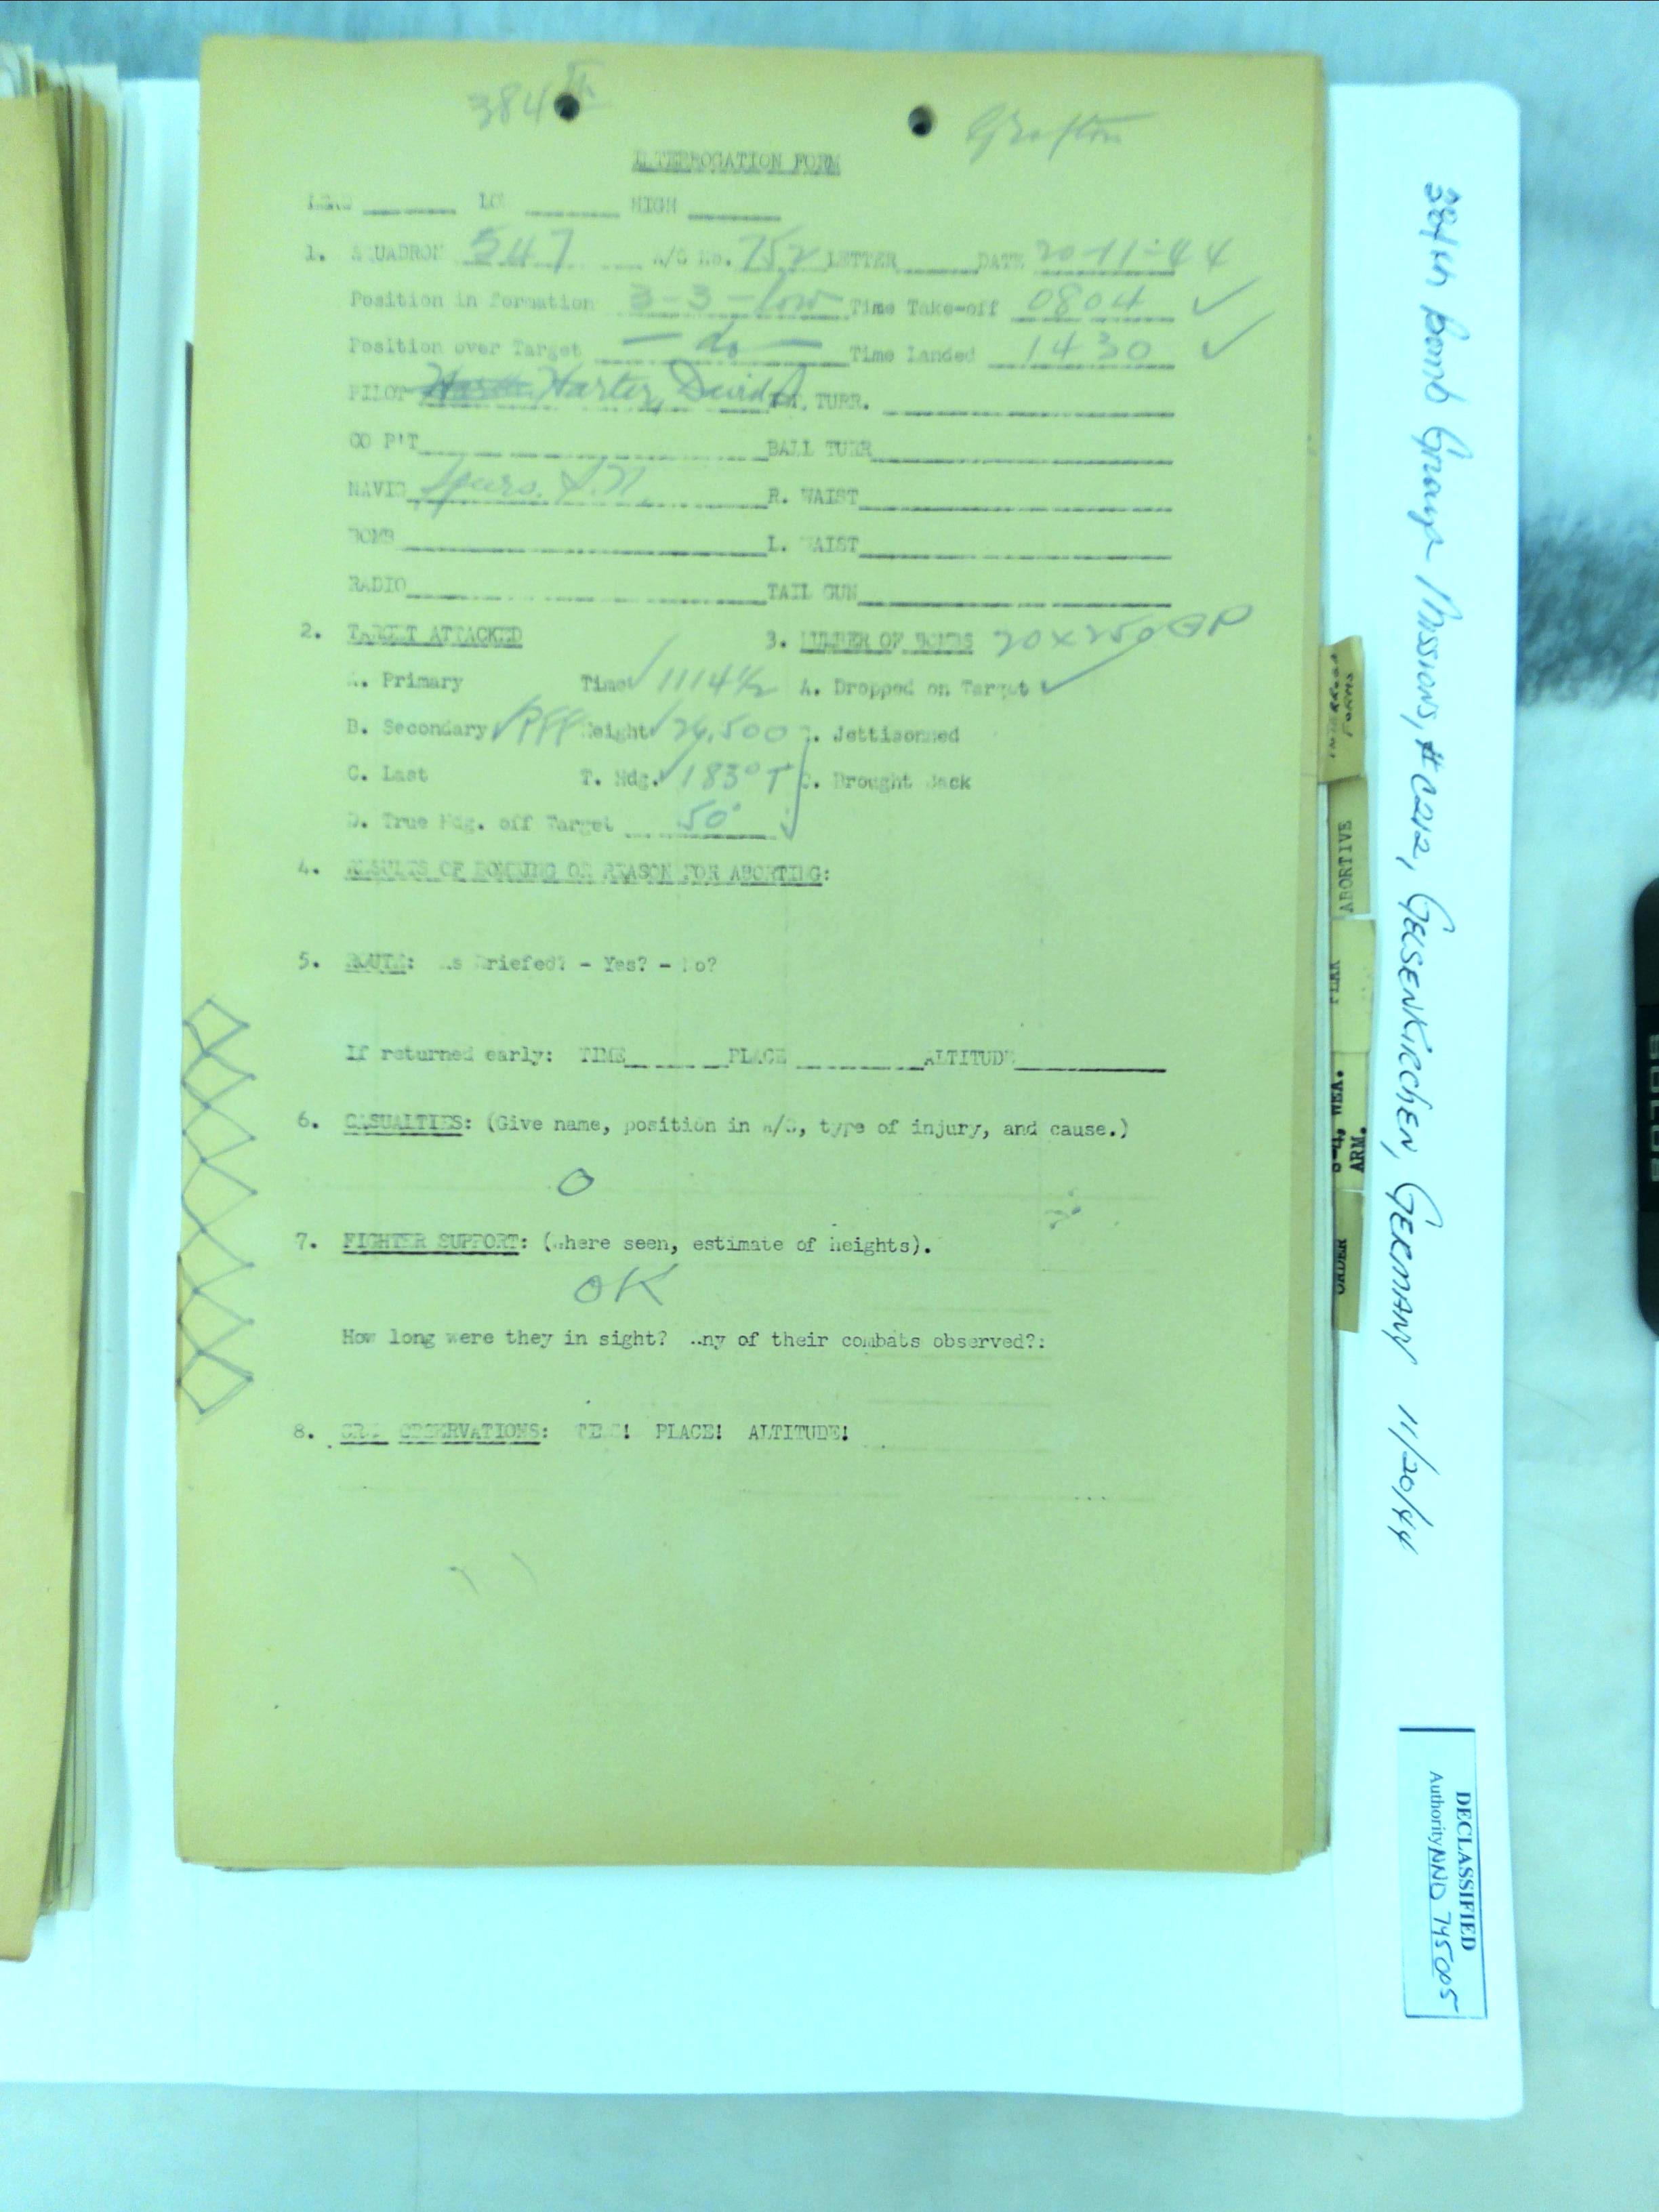 384th Grafton
INTERROGATION FORM
LEAD ____ LOW ____ HIGH ____
1. SQUADRON 547 A/C No. 752 LETTER ____ DATE 20-11-44
Position in formation 3-3-low Time Take-off 0804 ✓
Position over Target — do — Time landed 1430 ✓
PILOT Harter, David TURR. ____
CO P'T ____ BALL TURR ____
NAVIG R. WAIST ____
BOMB ____ L. WAIST ____
RADIO ____ TAIL GUN ____
2. TARGET ATTACKED 3. NUMBER OF BOMBS 20 x 250 GP
A. Primary Time ✓ 1114½ A. Dropped on Target ✓
B. Secondary ✓ PFF Height ✓ 26,500 B. Jettisonned
C. Last T. Hdg. ✓ 183° T C. Brought Back
D. True Hdg. off Target 50° ✓
4. RESULTS OF BOMBING OR REASON FOR ABORTING:
5. ROUTE: As Briefed? - Yes? - No?
If returned early: TIME ____ PLACE ____ ALTITUDE ____
6. CASUALTIES: (Give name, position in A/C, type of injury, and cause.)
O
7. FIGHTER SUPPORT: (Where seen, estimate of heights).
OK
How long were they in sight? Any of their combats observed?:
8. CREW OBSERVATIONS: TIME! PLACE! ALTITUDE!
INTERROG. FORMS
ABORTIVE
FLAK
S-4, WEA. ARM.
ORDER
384th Bomb Group Missions, #C212, GELSENKIRCHEN, GERMANY 11/20/44
DECLASSIFIED
Authority NND 745005